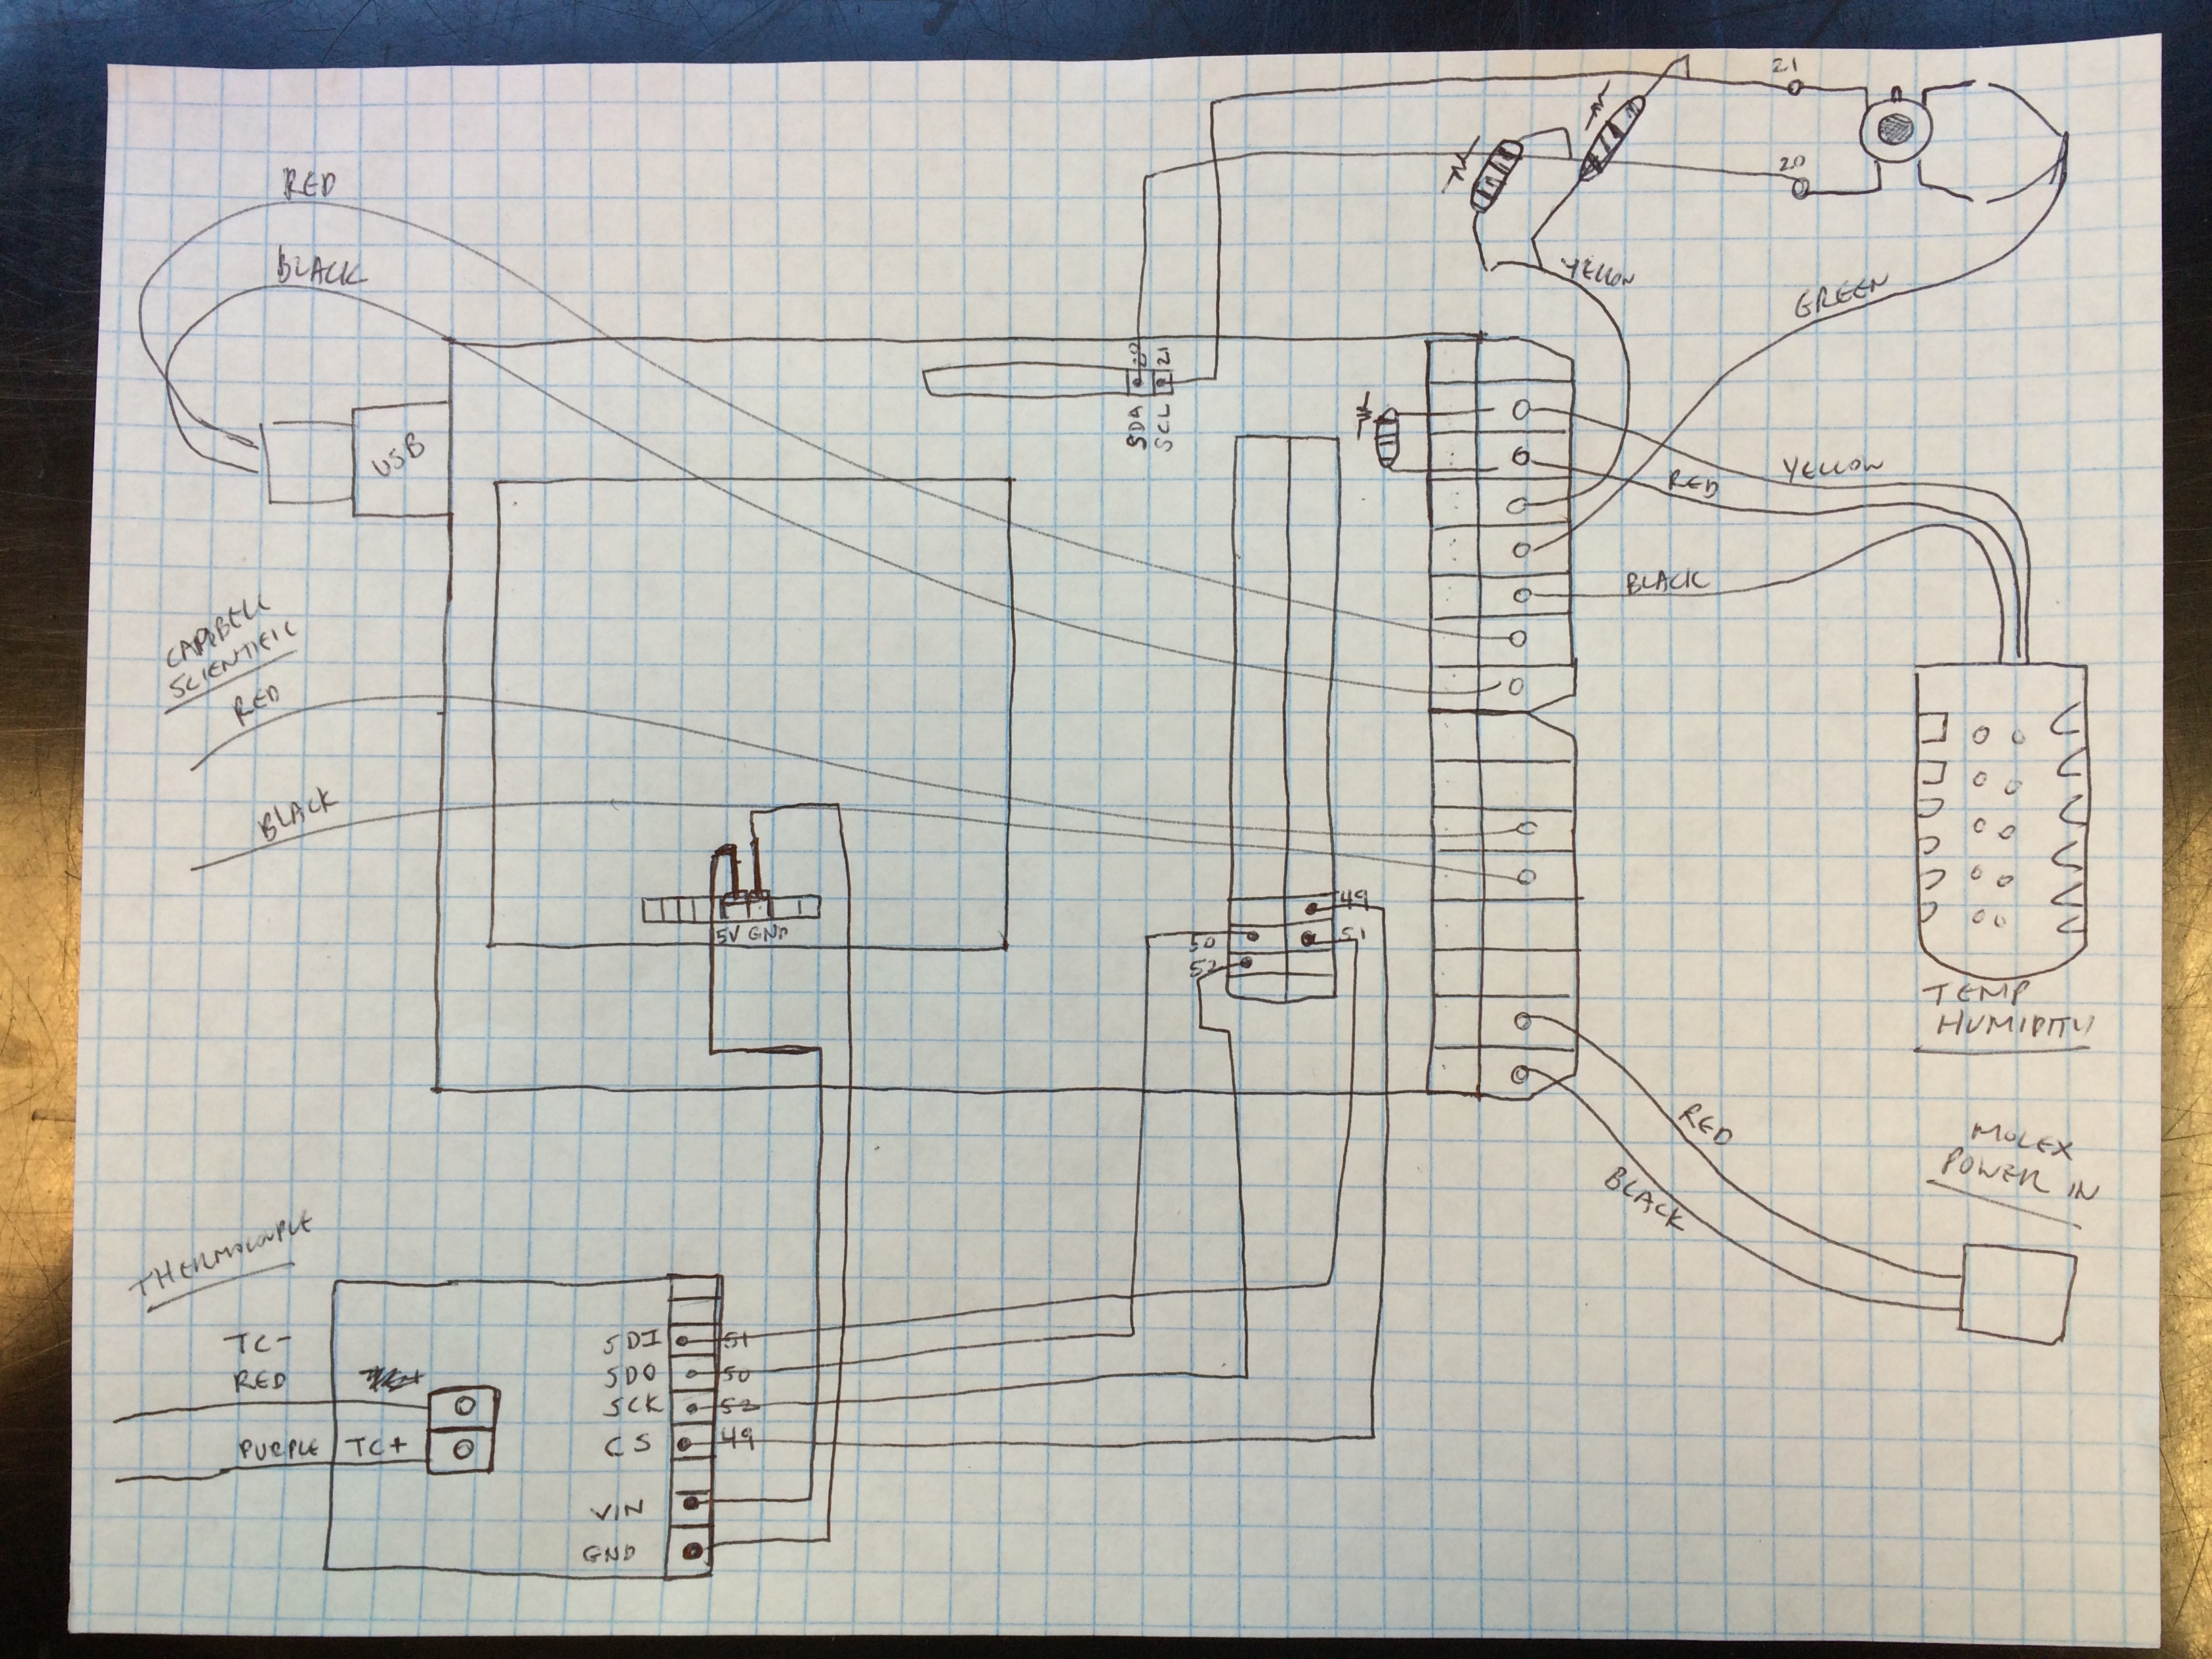 21
20
RED
BLACK
YELLOW
GREEN
20
21
SDA
SCL
USB
YELLOW
RED
BLACK
CAMPBELL
SCIENTIFIC
RED
BLACK
5V GND
49
50
51
52
TEMP
HUMIDITY
RED
BLACK
MOLEX
POWER IN
THERMOCOUPLE
TC-
RED
PURPLE
TC+
SDI 51
SDO 50
SCK 52
CS 49
VIN
GND